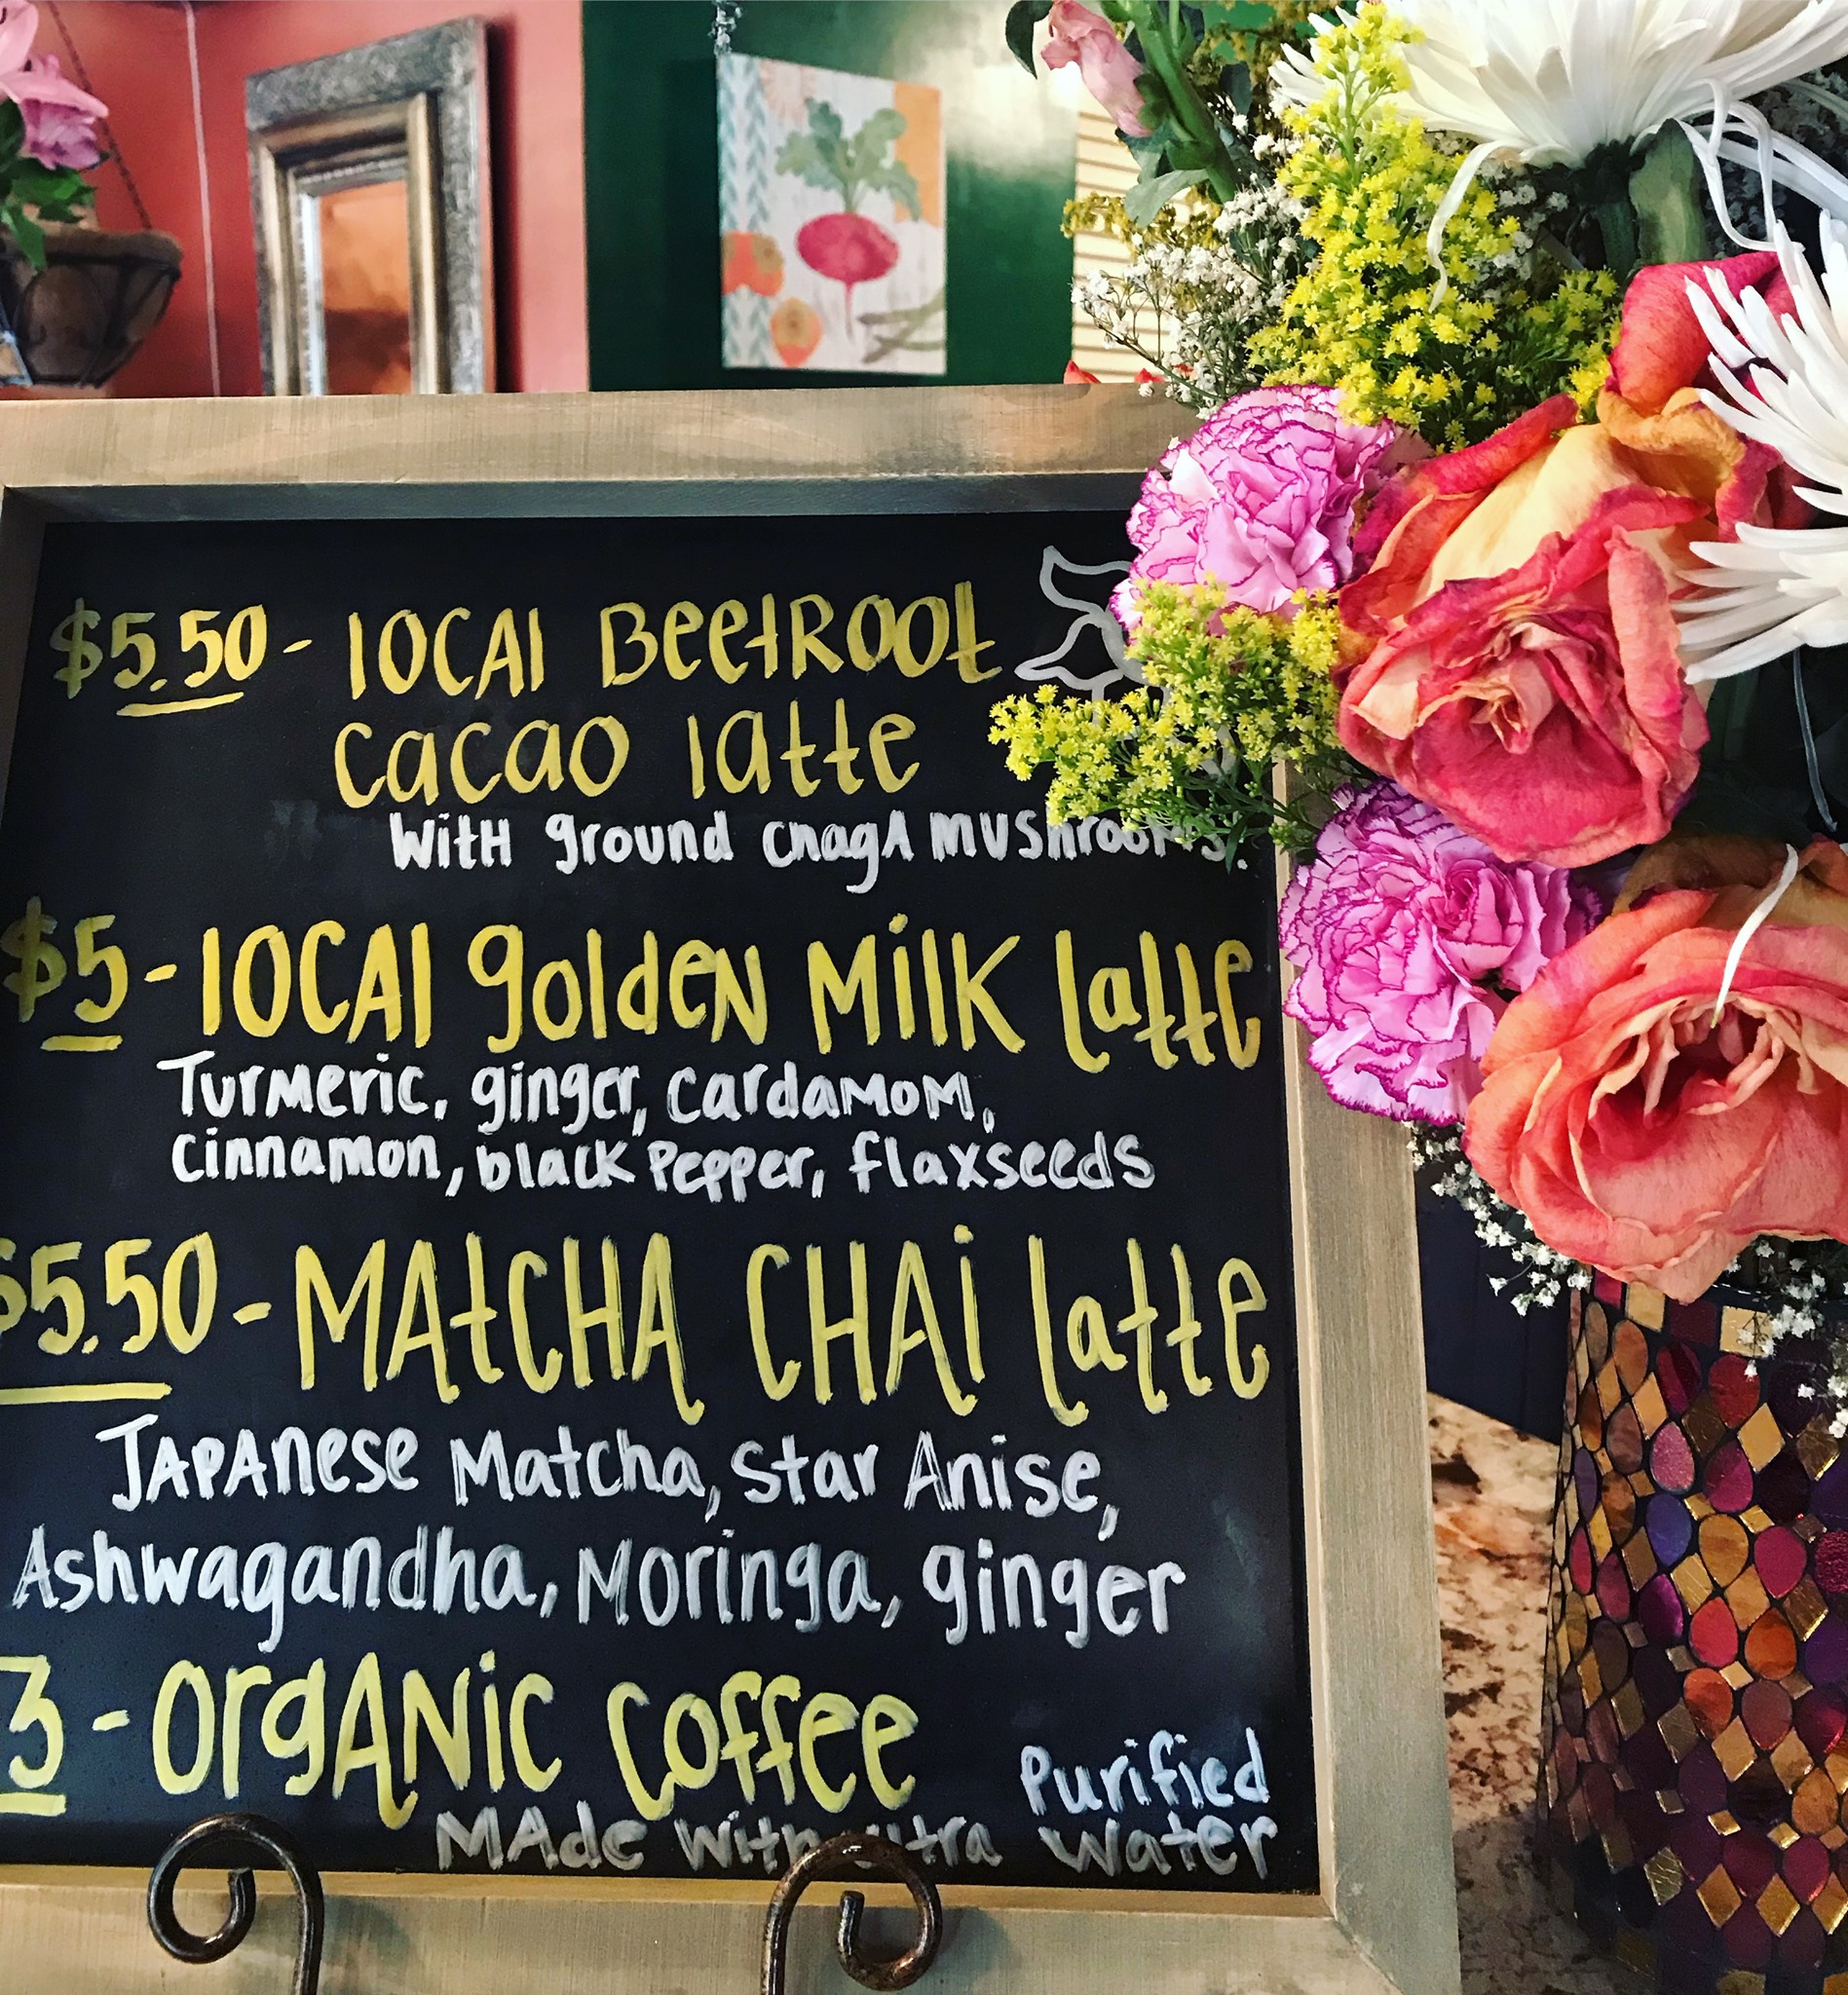 $5.50 - LOCAl BeetROOt
cacao latte
WitH ground chagA MUShrooms.
$5 - LOCAl golden Milk latte
Turmeric, ginger, cardamom,
cinnamon, black pepper, flaxseeds
$5.50 - MAtCHA CHAi latte
JAPAnese Matcha, star Anise,
Ashwagandha, Moringa, ginger
3 - OrgANic coffee
Purified
MAde with ultra water